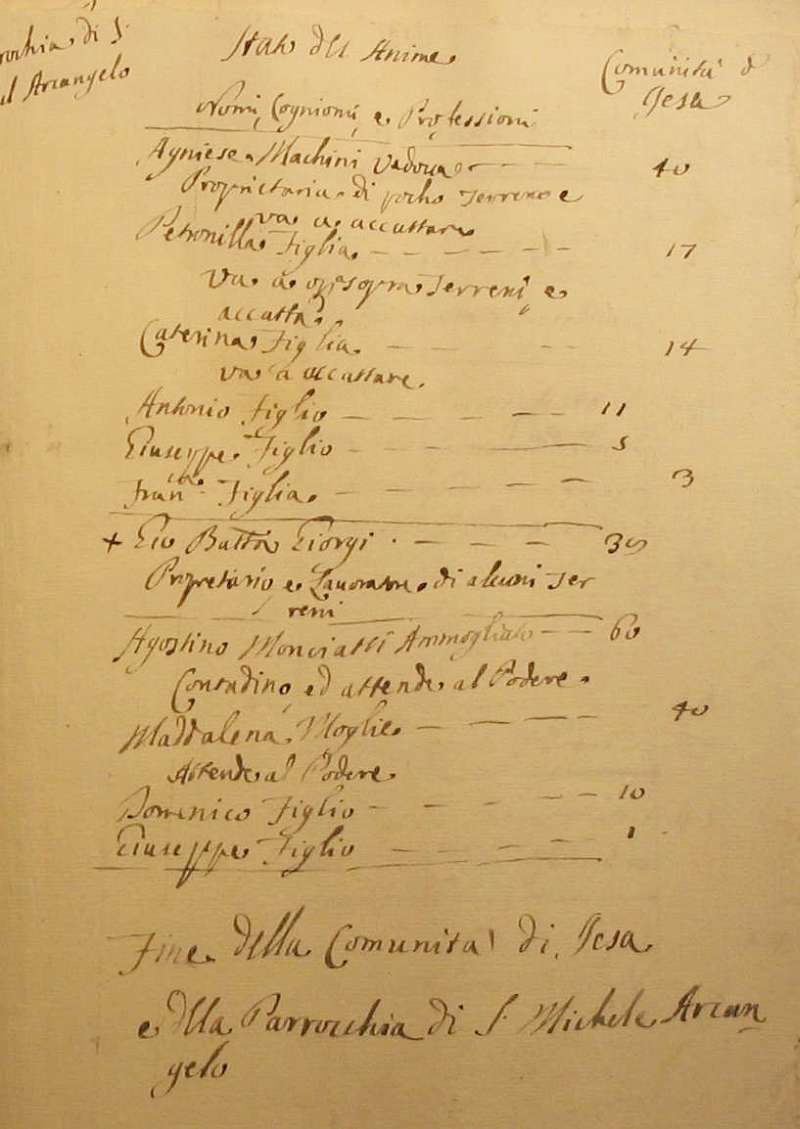 rochia di S.
el Arcangelo
Stato dell Anime
Comunità di
Jesa
Nomi, Cogniomi, e Professioni
Agniese Machini Vedova 40
Proprietaria di pocho terreno e
va a accattare
Petronilla Figlia 17
va a opre sopra terreni, e
accatta
Caterina Figlia 14
va a accattare.
Antonio Figlio 11
Giuseppe Figlio 5
Fran.ca Figlia 3
+ Gio Batta Giorgi 30
Proprietario e Lavoratore di alcuni ter
reni
Agostino Monciatti Ammogliato 60
Contadino, ed attende al Podere.
Maddalena Moglie 40
Attende al Podere
Domenico Figlio 10
Giuseppe Figlio 1
Fine della Comunita di Jesa
e della Parrochia di S. Michele Arcan
gelo